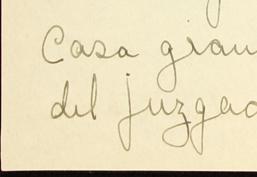 Casa gran
del juzgad